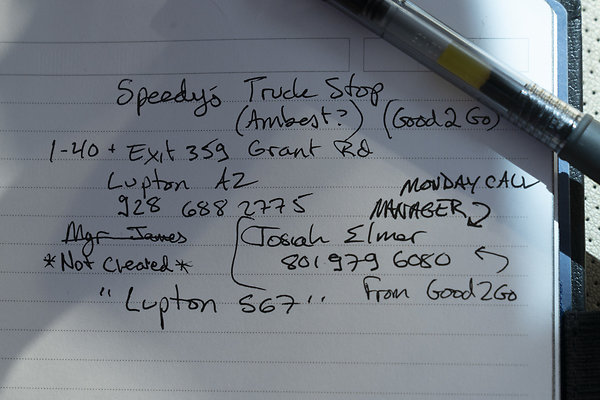 Speedy's Truck Stop
(Ambest?) (Good2Go)
I-40 + Exit 359 Grant Rd
Lupton AZ
928 688 2775
MONDAY CALL
MANAGER
Mgr James
Josiah Elmer
*Not Created*
801 979 6080
From Good2Go
"Lupton 567"